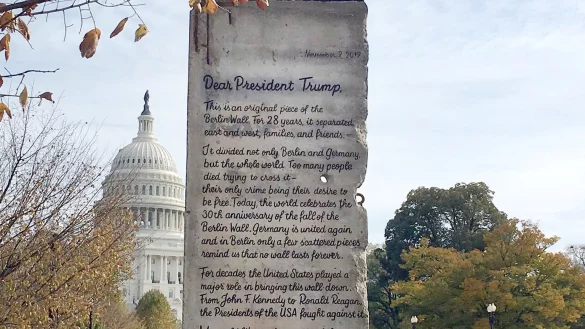 November 9, 2019
Dear President Trump,
This is an original piece of the
Berlin Wall. For 28 years, it separated
east and west, families, and friends.
It divided not only Berlin and Germany,
but the whole world. Too many people
died trying to cross it –
their only crime being their desire to
be free. Today, the world celebrates the
30th anniversary of the fall of the
Berlin Wall. Germany is united again
and in Berlin only a few scattered pieces
remind us that no wall lasts forever.
For decades the United States played a
major role in bringing this wall down.
From John F. Kennedy to Ronald Reagan,
the Presidents of the USA fought against it.